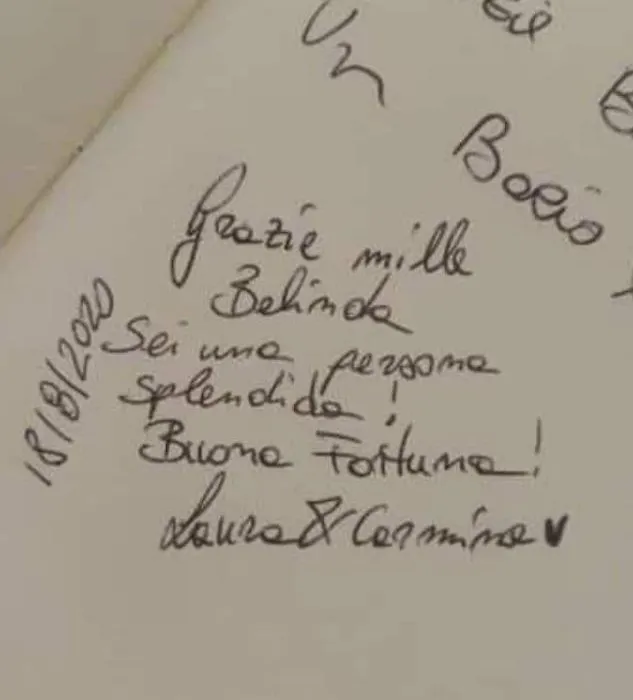 Bocio
Grazie mille
Belinda
Sei una persona
splendida!
Buona Fortuna!
Laura & Carmine ♥
18/8/2020